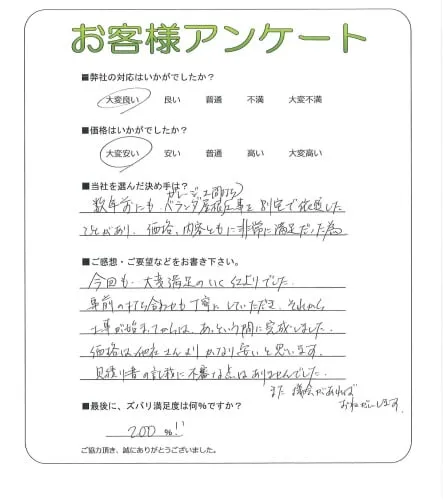 お客様アンケート
■弊社の対応はいかがでしたか?
大変良い 良い 普通 不満 大変不満
■価格はいかがでしたか?
大変安い 安い 普通 高い 大変高い
■当社を選んだ決め手は?
ガレージ土間打ち
数年前にも ベランダ屋根工事を 別宅で依頼した
ことがあり、価格、内容ともに非常に満足だった為
■ご感想・ご要望などをお書き下さい。
今回も 大変満足のいく仕上りでした。
事前の打ち合わせも丁寧にしていただき、それから
工事が始まってからは、あっという間に完成しました。
価格は他社さんより かなり安いと思います。
見積り書の記載に不審な点はありませんでした。
また 機会があれば
おねがいします。
■最後に、ズバリ満足度は何%ですか?
200 %!!
ご協力頂き、誠にありがとうございました。